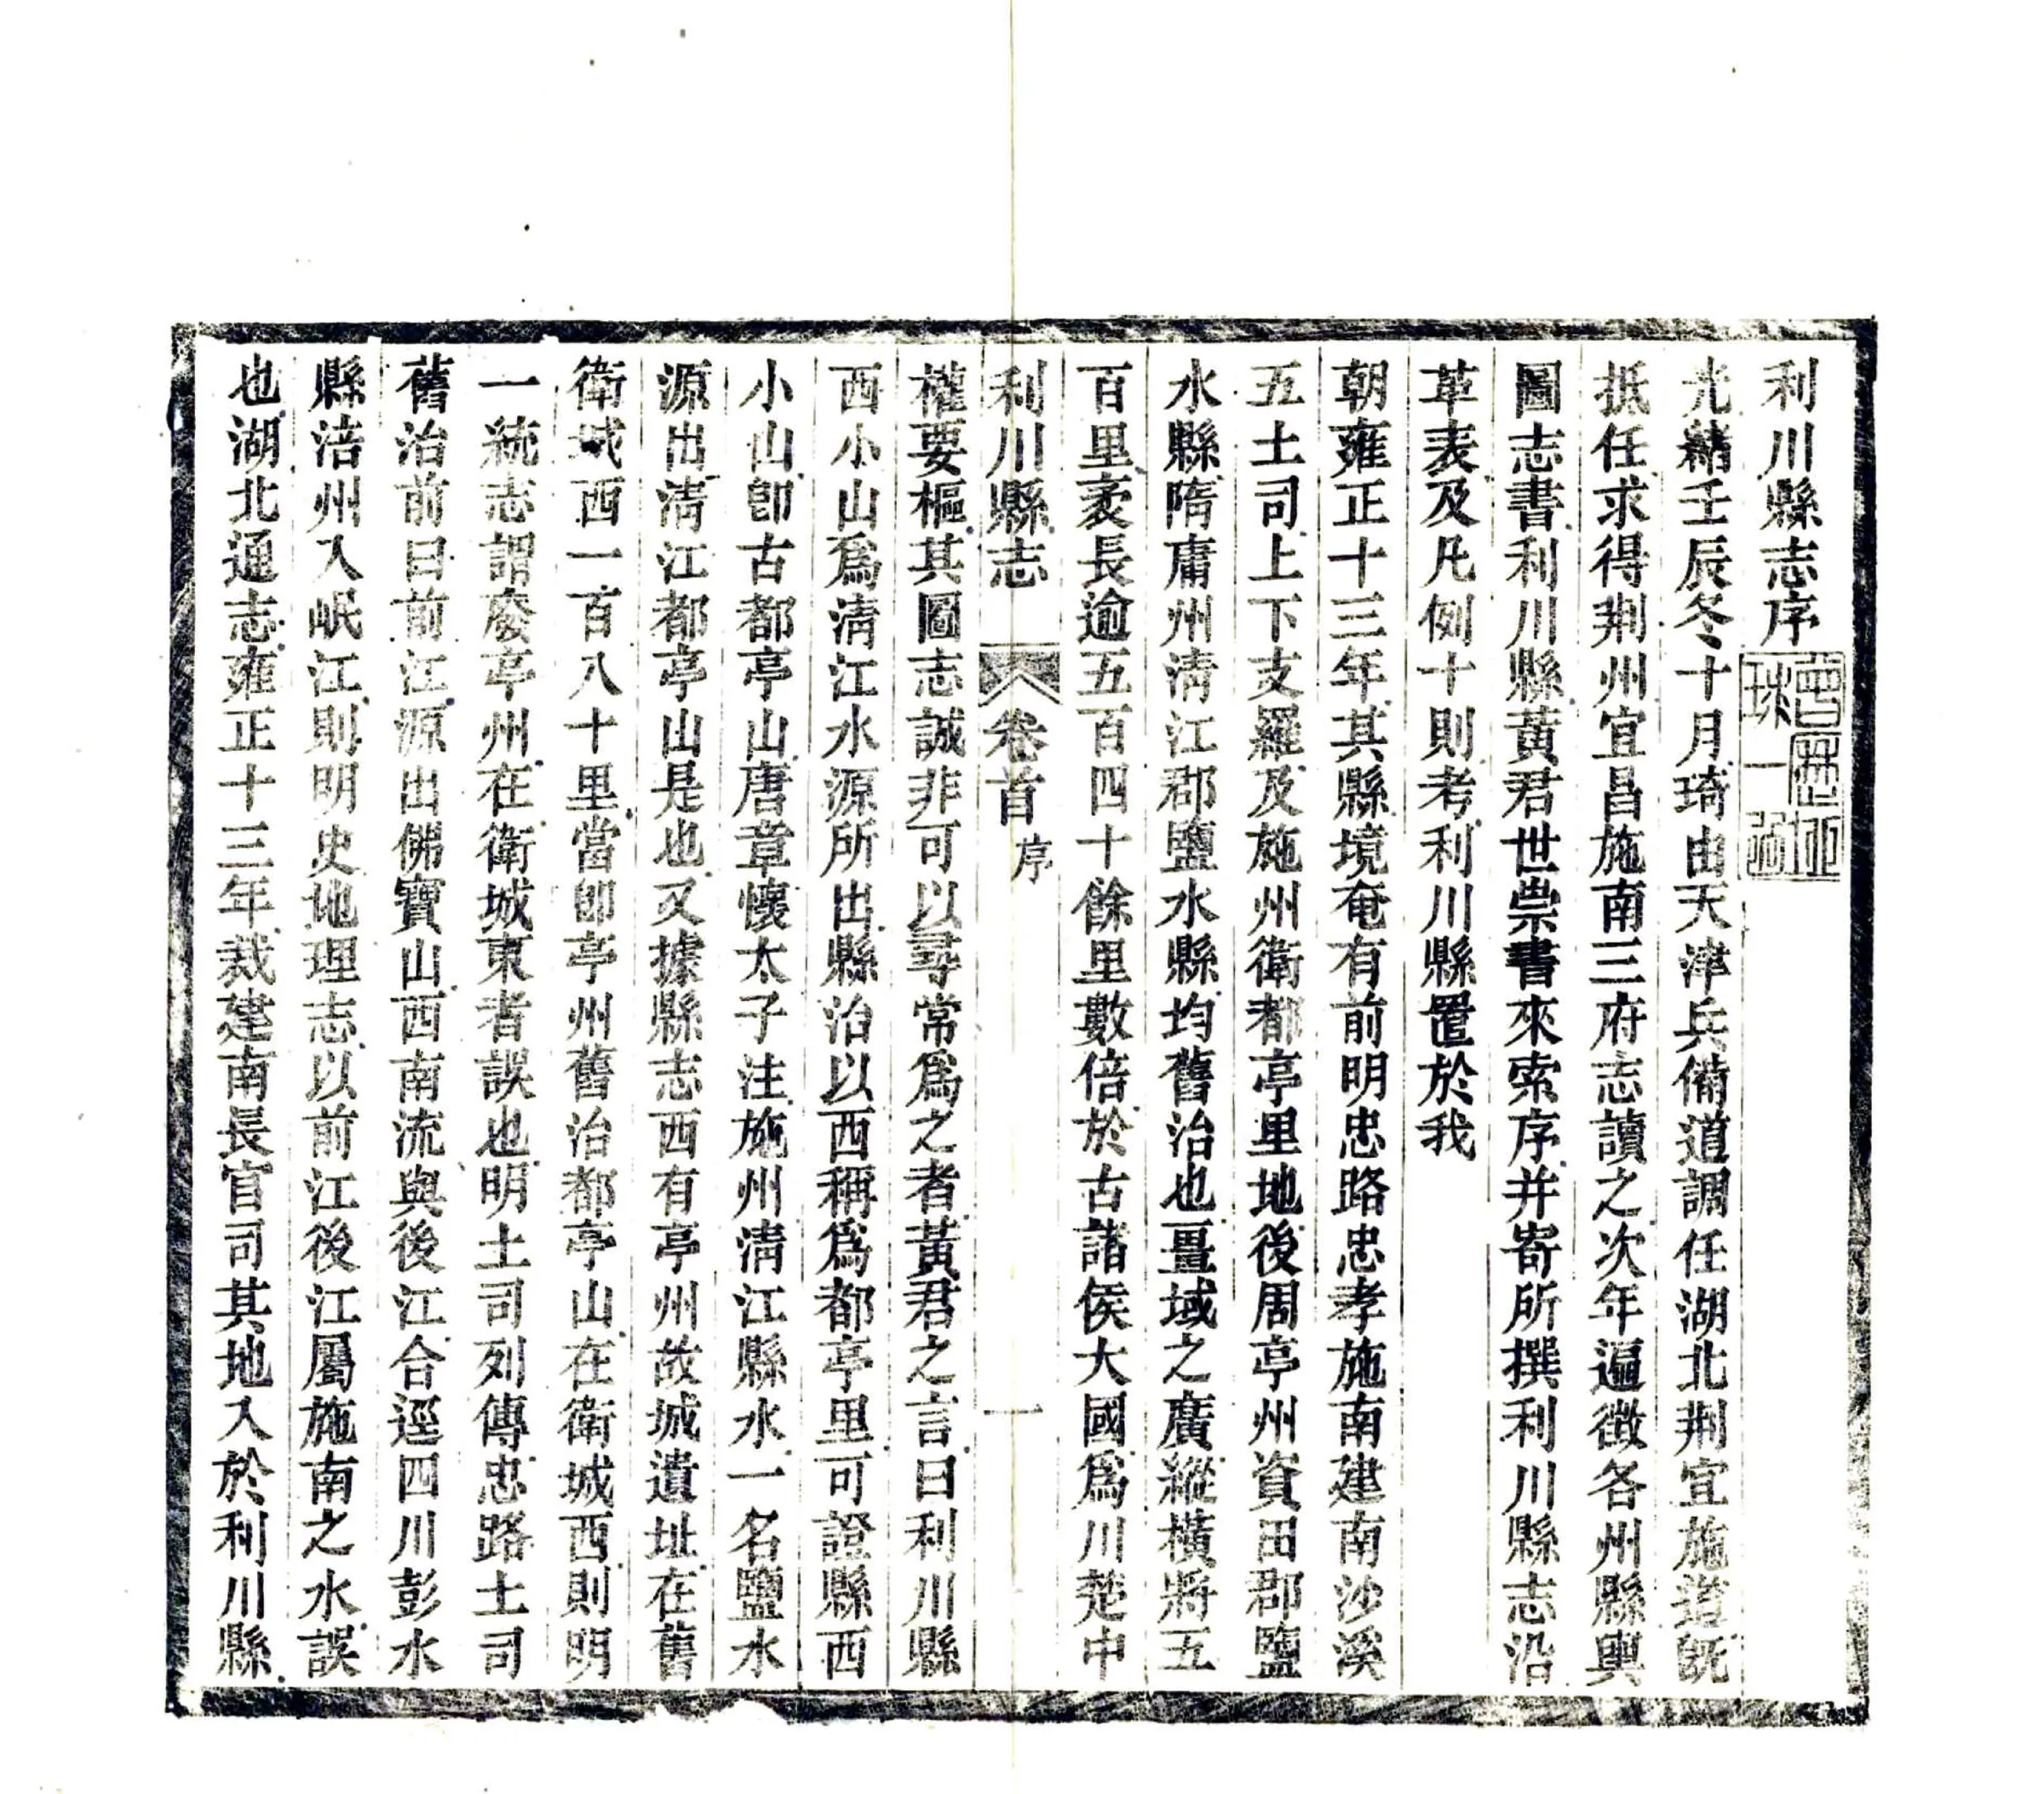 利川縣志序
光緒壬辰冬十月琦由天津兵備道調任湖北荆宜施道既
抵任求得荆州宜昌施南三府志讀之次年遍徵各州縣輿
圖志書利川縣黃君世崇書來索序并寄所撰利川縣志沿
革表及凡例十則考利川縣置於我
朝雍正十三年其縣境奄有前明忠路忠孝施南建南沙溪
五土司上下支羅及施州衛都亭里地後周亭州資田郡鹽
水縣隋庸州清江郡鹽水縣均舊治也畺域之廣縱橫將五
百里袤長逾五百四十餘里數倍於古諸侯大國爲川楚中
利川縣志 卷首 序 一
權要樞其圖志誠非可以尋常爲之者黃君之言曰利川縣
西小山爲清江水源所出縣治以西稱爲都亭里可證縣西
小山卽古都亭山唐章懷太子注施州清江縣水一名鹽水
源出清江都亭山是也又據縣志西有亭州故城遺址在舊
衛城西一百八十里當卽亭州舊治都亭山在衛城西則明
一統志謂廢亭州在衛城東者誤也明土司列傳忠路土司
舊治前曰前江源出佛寶山西南流與後江合逕四川彭水
縣涪州入岷江則明史地理志以前江後江屬施南之水誤
也湖北通志雍正十三年裁建南長官司其地入於利川縣